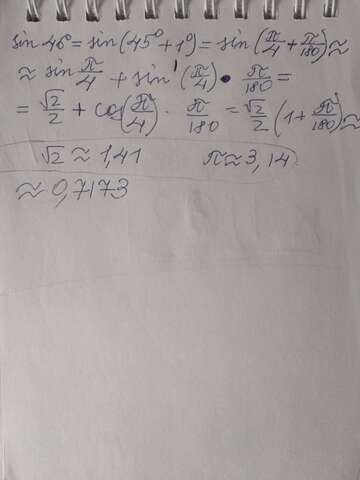 sin 46° = sin(45° + 1°) = sin(π/4 + π/180) ≈
≈ sin π/4 + sin'(π/4) · π/180 =
= √2/2 + cos(π/4) · π/180 = √2/2 (1 + π/180) ≈
√2 ≈ 1,41 π ≈ 3,14
≈ 0,7173